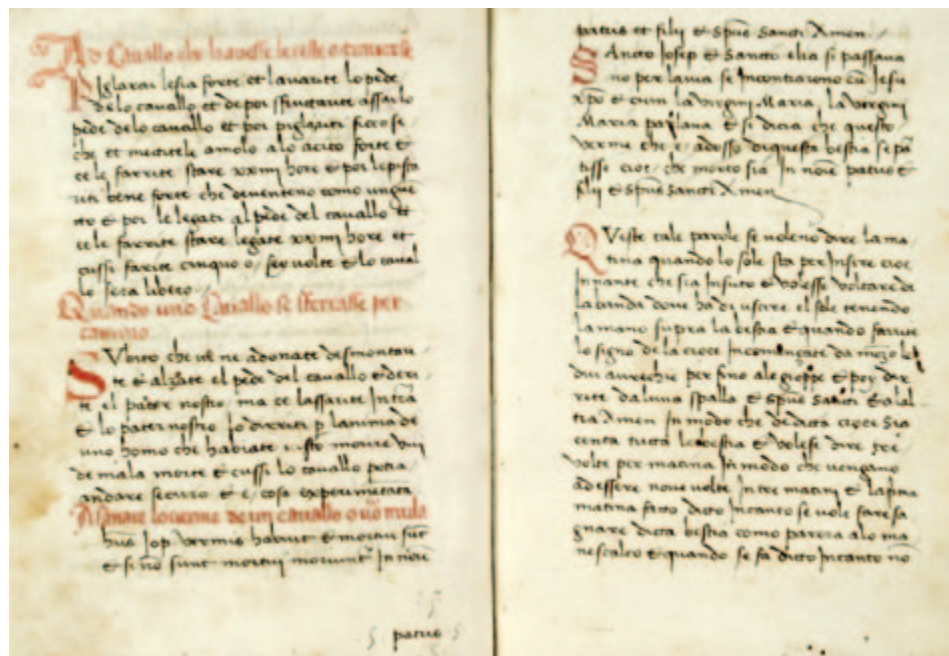 Ad Cavallo che havesse le reste o traverse
Piglarai lesia forte et lavarite lo pede
de lo cavallo et depoi assai lo
pede de lo cavallo et poi piglariti sicco se
che et mectitele amolo alo acito forte &
ce le farrite stare xxiiii hore & poi le pista
riti bene forte che deventeno como ungue
nto & poi le legati al pede del cavallo et
ce le farrite stare legate xxiiii hore et
cussi farite cinque o sey volte & lo caval
lo sera libero
Quando uno Cavallo se sferrasse per
camino
Subito che ve ne adonate desmontari
te & alzate el pede del cavallo & deri
te el pater nostro, ma ce lassarite
& lo pater nostro Io p lanima de
uno homo che habiate visto morire
de mala morte & cussi lo cavallo potra
andare securo & e cosa experimentata
A sanare lo verme de un cavallo o vo mula
Iop vermis habuit & mortui sut
& si no sunt mortui In noie
patris
patris et filii & spus sancti Amen
Sancto Josep & Sancto elia si passava
no per la via se Incontrarono cu Jesu
xpo & cum la virgini Maria, la vergini
Maria parlava & si dicia che questo
verme che e adosso di questa bestia se pa
tisse cioe che morto sia In noie patris &
filii & spus sancti Amen
Queste tale parole se voleno dire la ma
tina quando lo sole sta per Inscire cioe
Innante che sia Insuto & volesse voltare da
la banda dove ha di uscire el sole tenendo
la mano supra la bestia & quando farrite
lo signo de la croce Incomenzate da mezo le
dui aurechie per fino ale & poy dir
rite da luna spalla & spus sancti & alal
tra Amen In modo che de dicta croce sia
centa tucta le bestia & volese dire tre
volte per matina In modo che vengano
ad essere nove volte In tre matini & la pma
matina facto dicto Incanto se vole fare sa
gnare dicta bestia como parera alo ma
nescalco & quando se fa dicto Incanto no